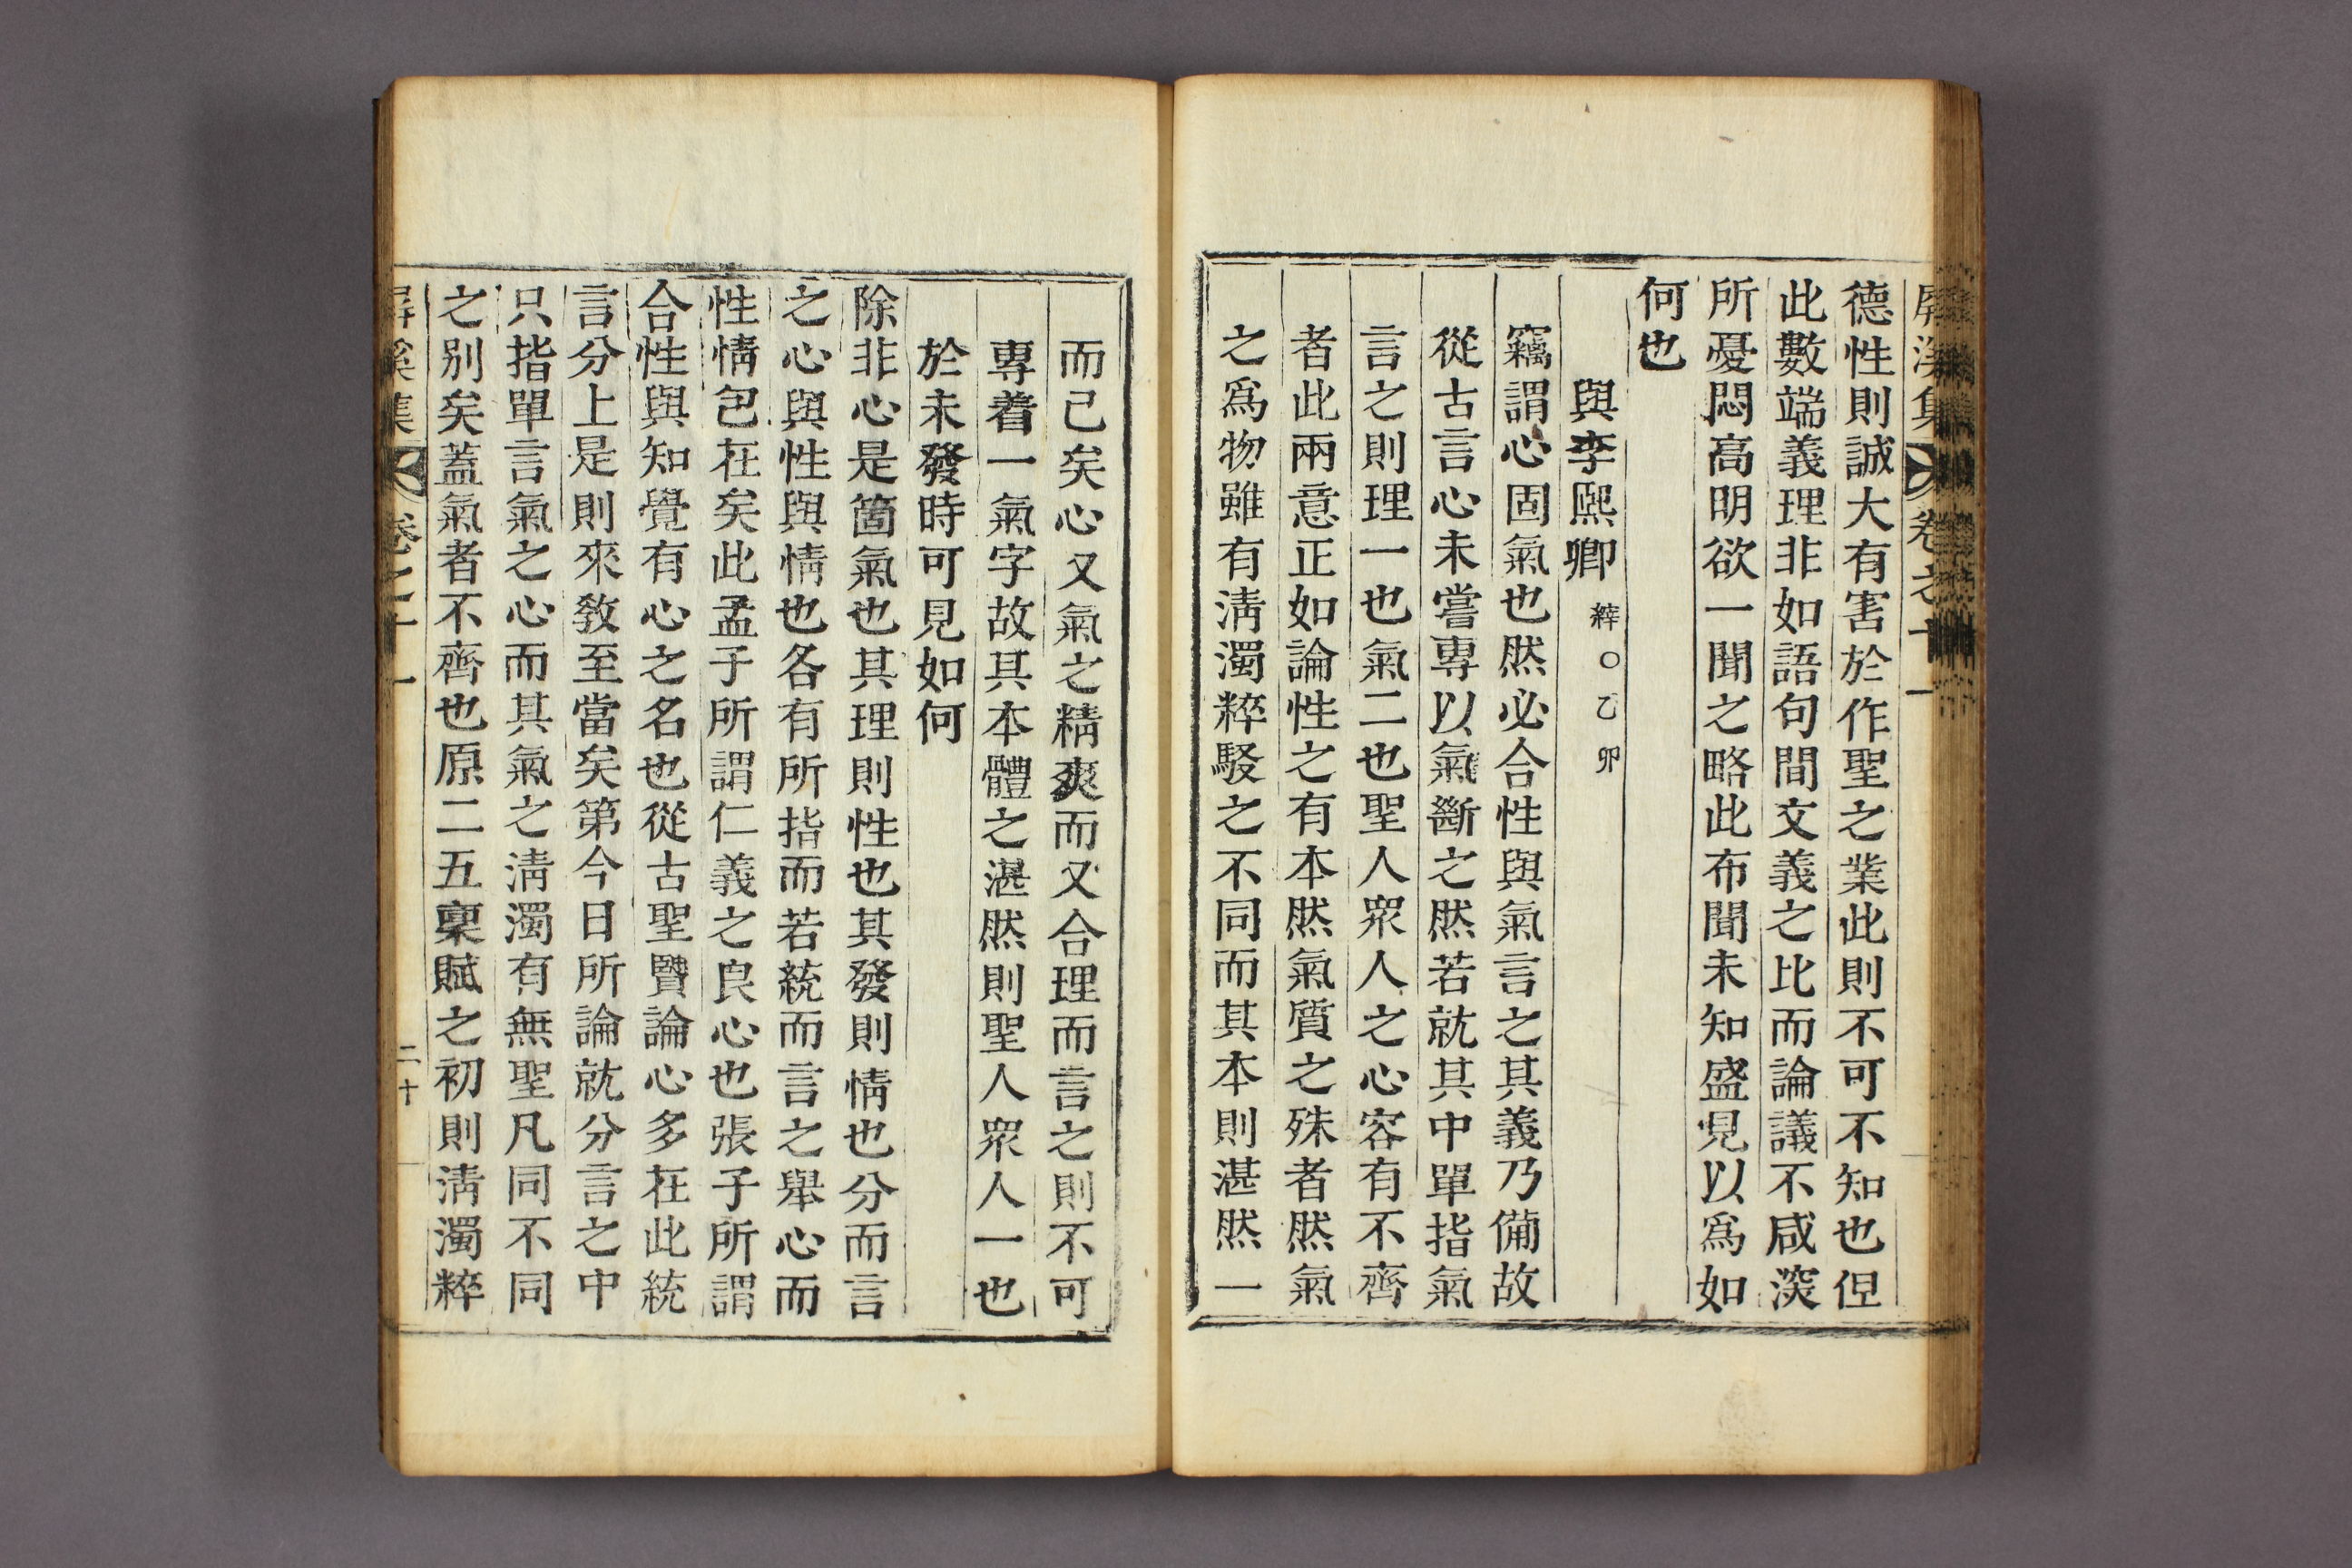 屛溪集 卷之十一
德性則誠大有害於作聖之業此則不可不知也但
此數端義理非如語句間文義之比而論議不咸深
所憂悶高明欲一聞之略此布聞未知盛見以爲如
何也
與李熙卿 縡○乙卯
竊謂心固氣也然必合性與氣言之其義乃備故
從古言心未嘗專以氣斷之然若就其中單指氣
言之則理一也氣二也聖人衆人之心容有不齊
者此兩意正如論性之有本然氣質之殊者然氣
之爲物雖有淸濁粹駁之不同而其本則湛然一
而已矣心又氣之精爽而又合理而言之則不可
專着一氣字故其本體之湛然則聖人衆人一也
於未發時可見如何
除非心是箇氣也其理則性也其發則情也分而言
之心與性與情也各有所指而若統而言之舉心而
性情包在矣此孟子所謂仁義之良心也張子所謂
合性與知覺有心之名也從古聖賢論心多在此統
言分上是則來敎至當矣第今日所論就分言之中
只指單言氣之心而其氣之淸濁有無聖凡同不同
之別矣蓋氣者不齊也原二五稟賦之初則淸濁粹
屛溪集 卷之十一 二十